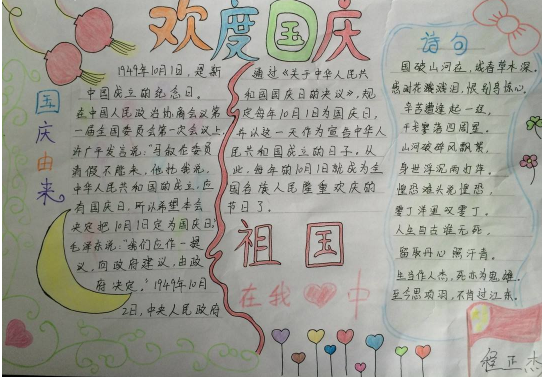 欢度国庆
国庆由来
1949年10月1日,是新
中国成立的纪念日。
在中国人民政治协商会议第
一届全国委员会第一次会议上,
许广平发言说:“马叙伦委员
请假不能来,他托我说,
中华人民共和国的成立,应
有国庆日,所以希望本会
决定把10月1日定为国庆日。”
毛泽东说:“我们应作一提
议,向政府建议,由政
府决定。”1949年10月
2日,中央人民政府
通过《关于中华人民共
和国国庆日的决议》,规
定每年10月1日为国庆日,
并以这一天作为宣告中华人
民共和国成立的日子。从
此,每年的10月1日就成为全
国各族人民隆重欢庆的
节日了。
祖国
在我中
诗句
国破山河在,城春草木深。
感时花溅泪,恨别鸟惊心。
辛苦遭逢起一经,
干戈寥落四周星。
山河破碎风飘絮,
身世浮沉雨打萍。
惶恐滩头说惶恐,
零丁洋里叹零丁。
人生自古谁无死,
留取丹心照汗青。
生当作人杰,死亦为鬼雄。
至今思项羽,不肯过江东。
程正杰